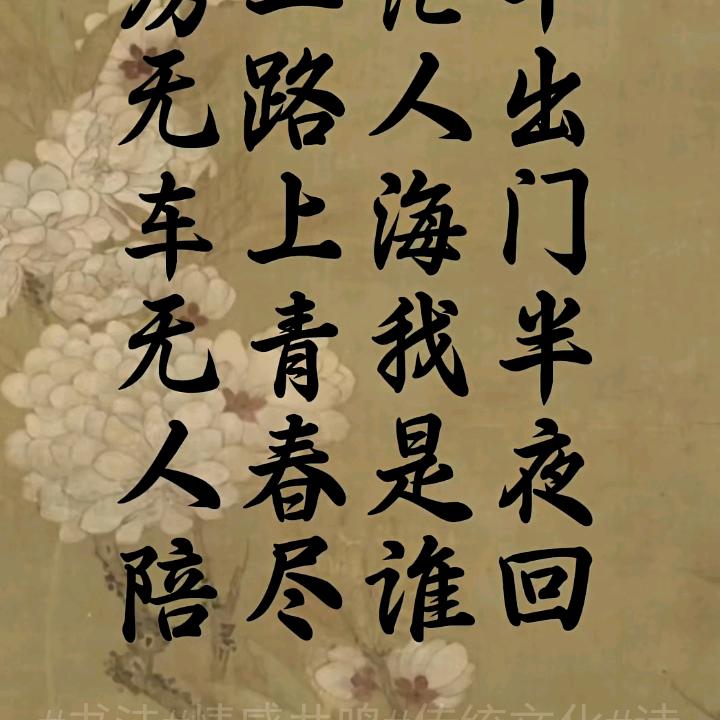 出门半夜回
人海我是谁
路上青春尽
无车无人陪
#书法#情感共鸣#传统文化#